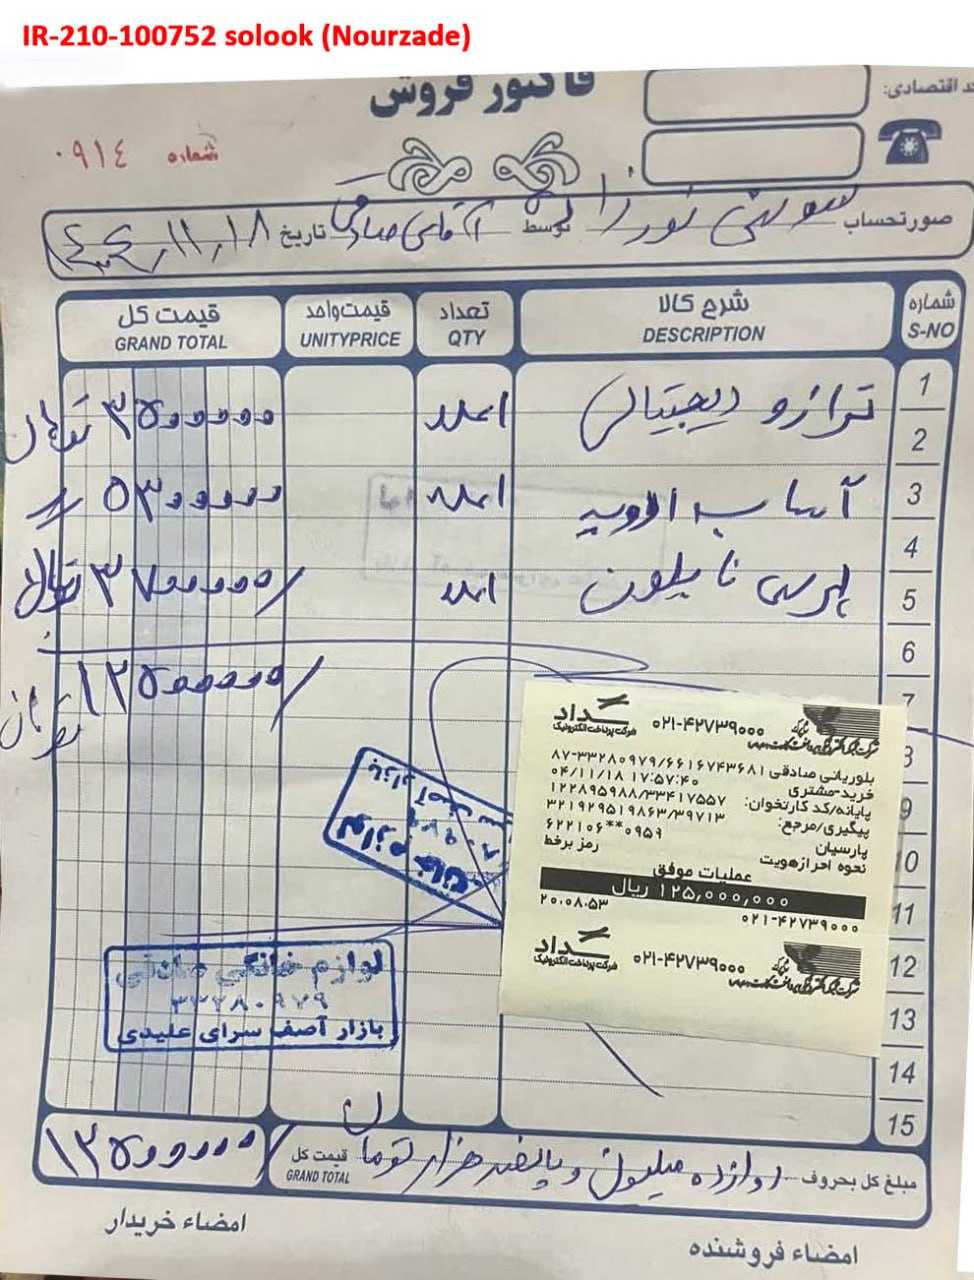 IR-210-100752 solook (Nourzade)
کد اقتصادی:
فاکتور فروش
شماره ۰۹۱۴
صورتحساب سوسن نورزاده توسط آقای صادقی تاریخ ۱۴۰۴,۱۱,۱۸
شماره شرح کالا تعداد قیمت واحد قیمت کل
S-NO DESCRIPTION QTY UNITYPRICE GRAND TOTAL
1
ترازو دیجیتالی ۱عدد ۳۵۰۰۰۰۰ تومان
2
3
آسیاب ادویه ۱عدد ۵۳۰۰۰۰۰ //
4
پرس نایلون ۱عدد ۳۷۰۰۰۰۰/ تومان
5
6
۱۲۵۰۰۰۰۰/ تومان
7
8
9
10
11
12
13
14
15
سداد
شرکت پرداخت الکترونیک
۰۲۱-۴۲۷۳۹۰۰۰
بلوریانی صادقی ۸۷-۳۳۲۸۰۹۷۹/۶۶۱۶۷۴۳۶۸۱
خرید-مشتری ۰۴/۱۱/۱۸ ۱۷:۵۷:۴۰
پایانه/کد کارتخوان: ۱۲۲۸۹۵۹۸۸/۳۳۴۱۷۵۵۷
پیگیری/مرجع: ۳۲۱۹۲۹۵۱۹۸۶۳/۳۹۷۱۳
پارسیان ۶۲۲۱۰۶**۰۹۵۹
نحوه احراز هویت رمز برخط
عملیات موفق
۱۲۵,۰۰۰,۰۰۰ ریال
۰۲۱-۴۲۷۳۹۰۰۰ ۲۰.۰۸.۵۳
سداد
شرکت پرداخت الکترونیک
۰۲۱-۴۲۷۳۹۰۰۰
لوازم خانگی
لوازم خانگی صادقی
۳۳۲۸۰۹۷۹
بازار آصف سرای علیدی
مبلغ کل بحروف دوازده میلیون و پانصد هزار تومان قیمت کل ۱۲۵۰۰۰۰۰/
GRAND TOTAL
امضاء فروشنده امضاء خریدار